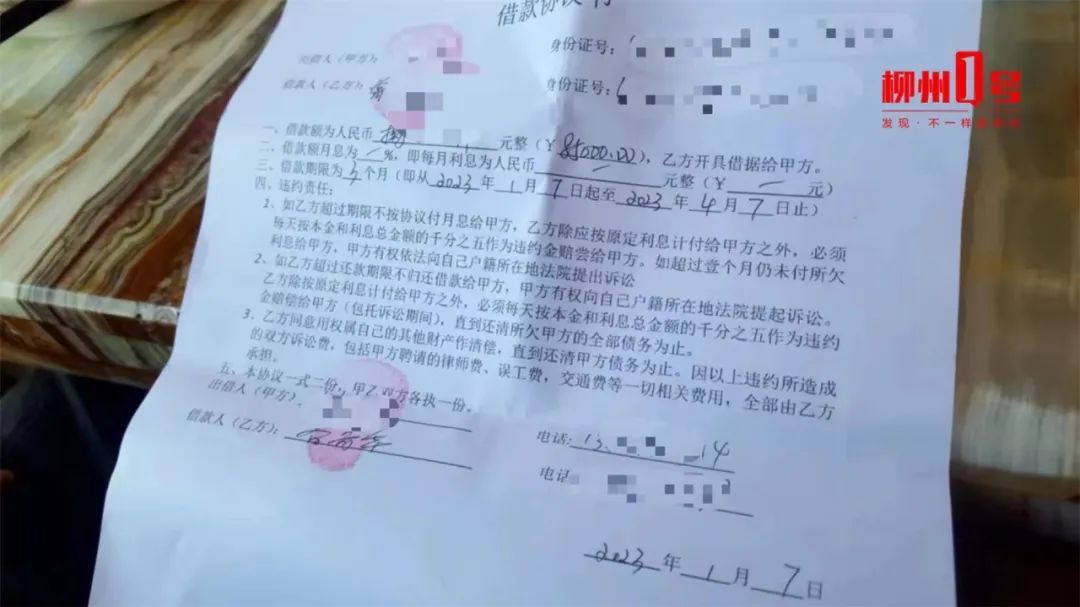 借款协议书
柳州1号
发现·不一样
出借人（甲方）：
身份证号：
借款人（乙方）：
身份证号：
一、借款额为人民币 元整（￥85000.00），乙方开具借据给甲方。
二、借款额月息为 %，即每月利息为人民币 元整（￥ 元）
三、借款期限为3个月（即从2023年1月7日起至2023年4月7日止）
四、违约责任：
1、如乙方超过期限不按协议付月息给甲方，乙方除应按原定利息计付给甲方之外，必须
每天按本金和利息总金额的千分之五作为违约金赔尝给甲方。如超过壹个月仍未付所欠
利息给甲方，甲方有权依法向自己户籍所在地法院提出诉讼
2、如乙方超过还款期限不归还借款给甲方，甲方有权向自己户籍所在地法院提起诉讼。
乙方除按原定利息计付给甲方之外，必须每天按本金和利息总金额的千分之五作为违约
金赔偿给甲方（包托诉讼期间），直到还清所欠甲方的全部债务为止。
3、乙方同意用权属自己的其他财产作清偿，直到还清甲方债务为止。因以上违约所造成
的双方诉讼费，包括甲方聘请的律师费、误工费，交通费等一切相关费用，全部由乙方
承担。
五、本协议一式二份，甲乙双方各执一份。
出借人（甲方）：
电话：13 14
借款人（乙方）：
电话
2023年1月7日